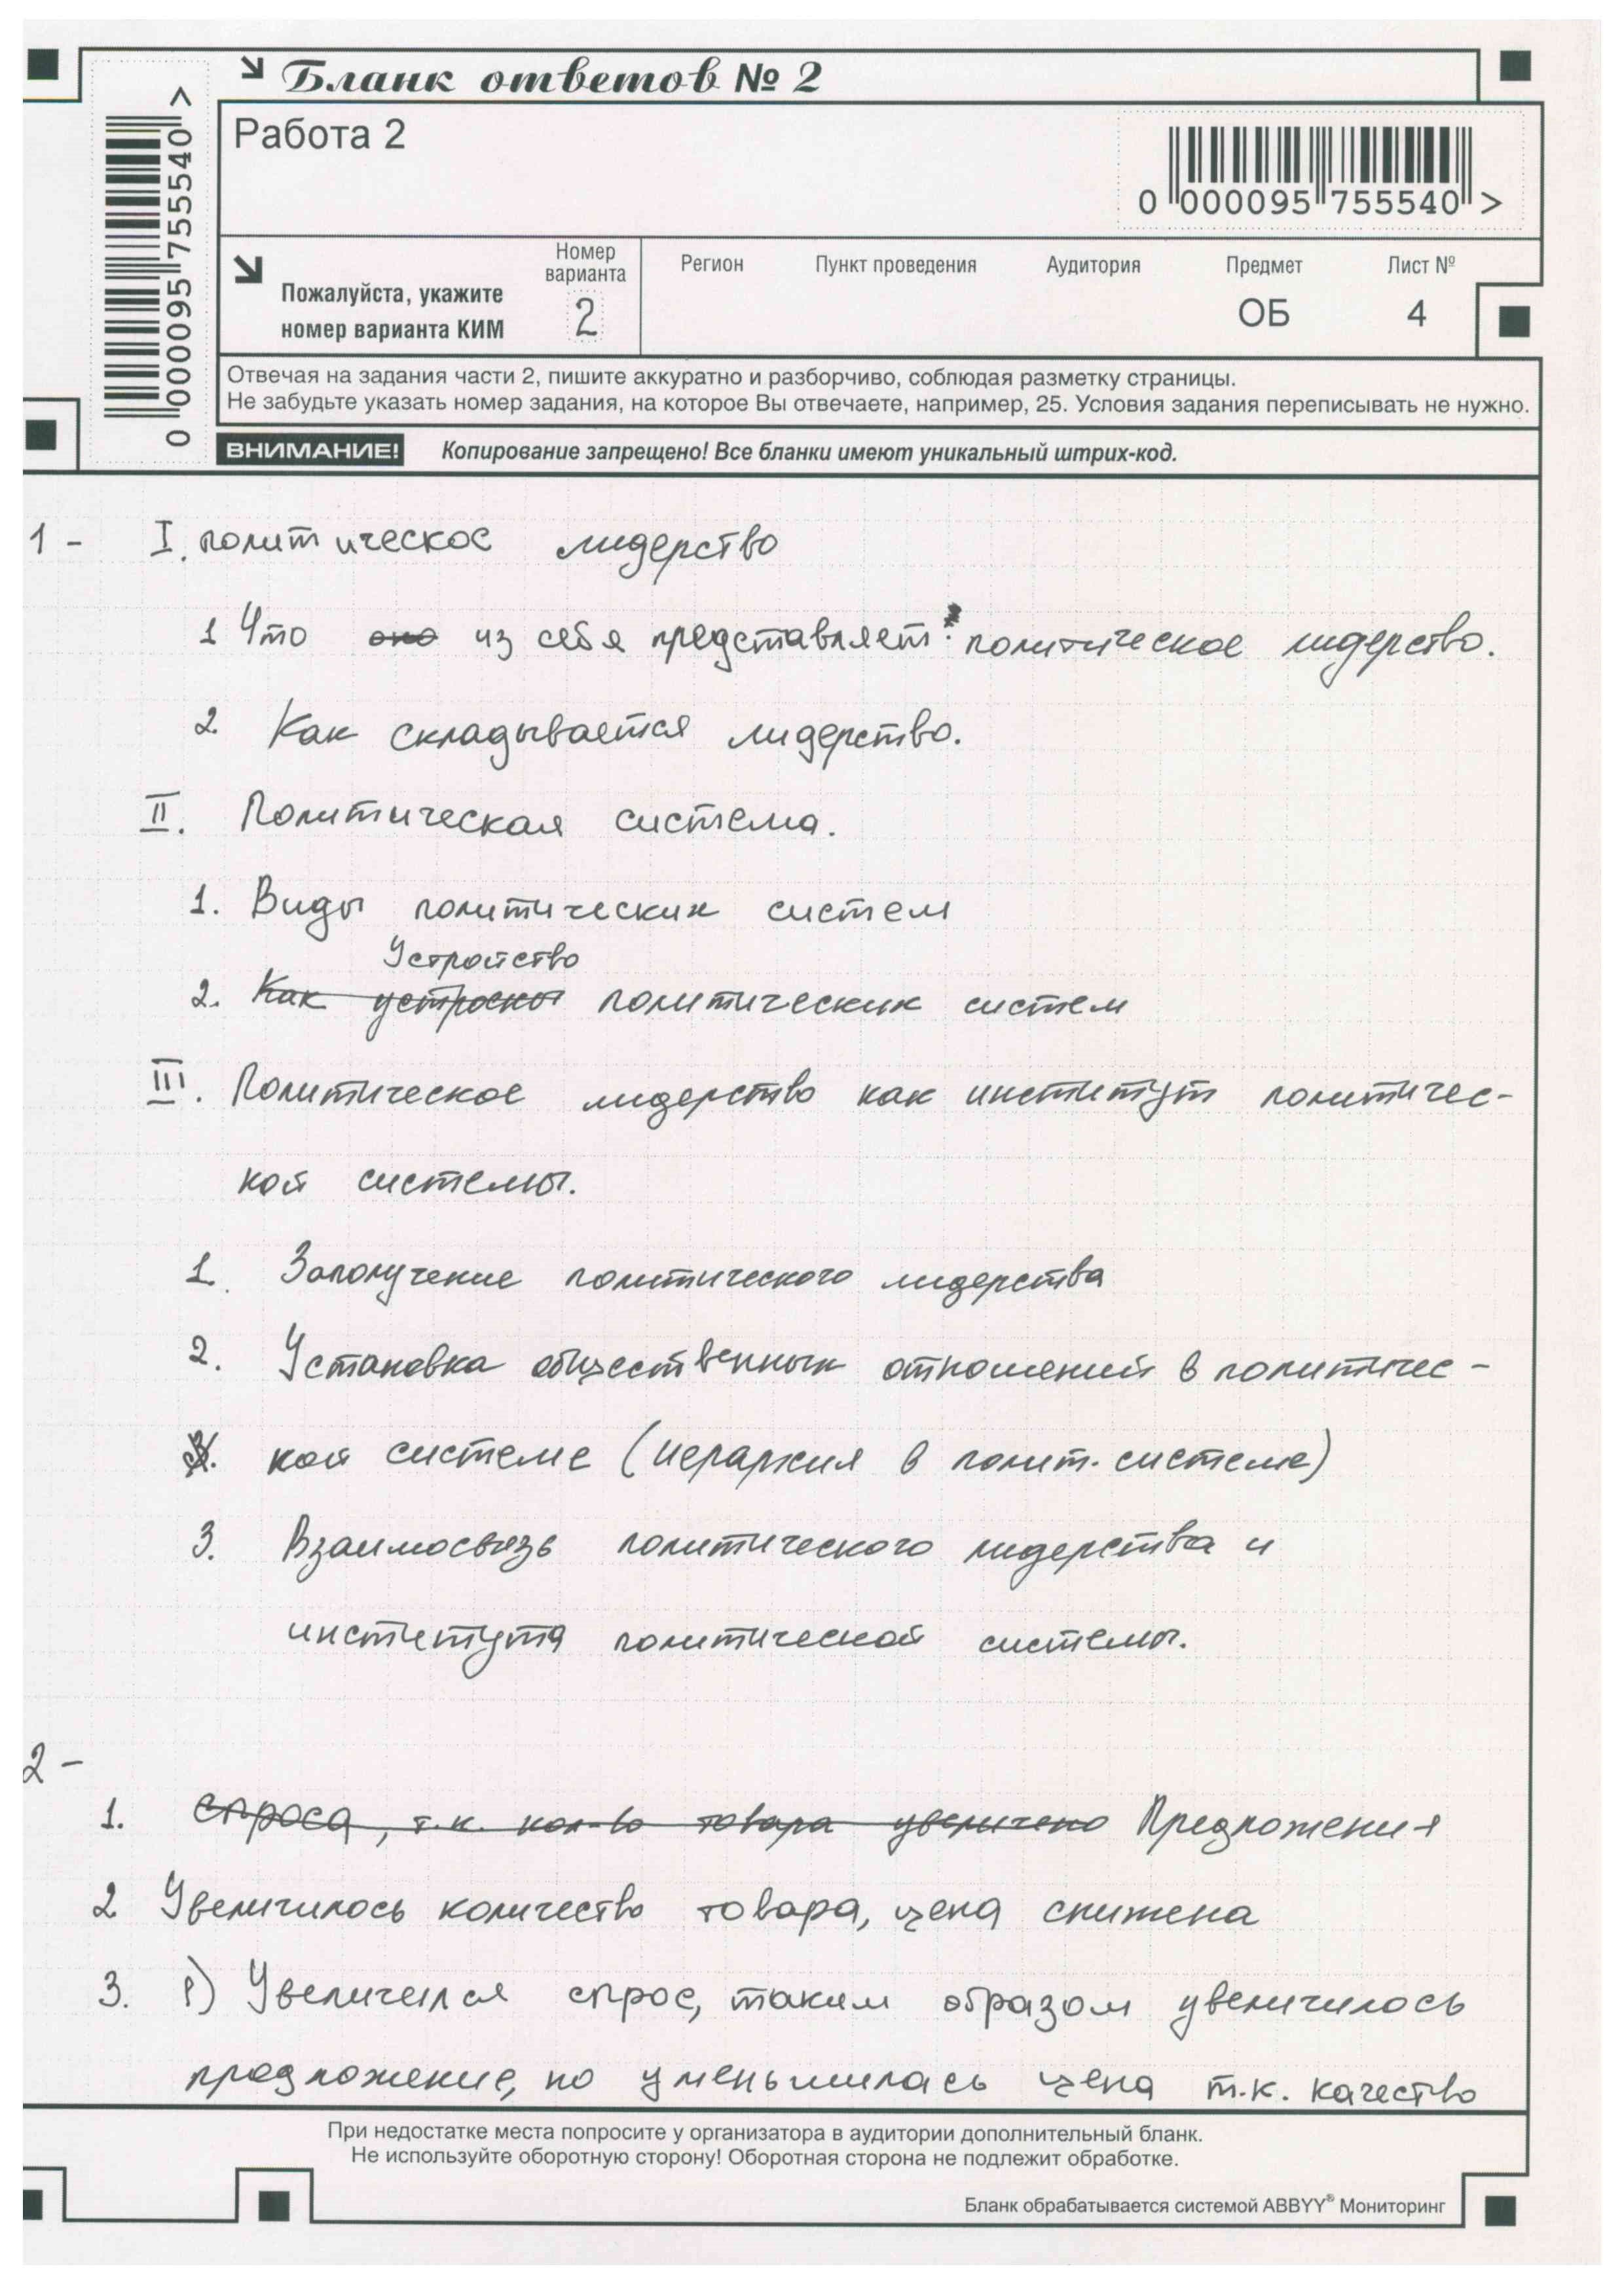 Бланк ответов № 2
Работа 2
0 000095 755540 >
0 000095 755540 >
Пожалуйста, укажите
номер варианта КИМ
Номер
варианта
2
Регион
Пункт проведения
Аудитория
Предмет
ОБ
Лист №
4
Отвечая на задания части 2, пишите аккуратно и разборчиво, соблюдая разметку страницы.
Не забудьте указать номер задания, на которое Вы отвечаете, например, 25. Условия задания переписывать не нужно.
ВНИМАНИЕ! Копирование запрещено! Все бланки имеют уникальный штрих-код.
1 - I. политическое лидерство
1 Что оно из себя представляет: политическое лидерство.
2. Как складывается лидерство.
II. Политическая система.
1. Виды политических систем
Устройство
2. Как устроены политических систем
III. Политическое лидерство как институт политичес-
кой системы.
1. Заполучение политического лидерства
2. Установка общественных отношений в политичес-
кой системе (иерархия в полит. системе)
3. Взаимосвязь политического лидерства и
института политической системы.
2 -
1. спроса, т.к. кол-во товара увеличено Предложения
2 Увеличилось количество товара, цена снижена
3. 1) Увеличелся спрос, таким образом увеличилось
предложение, но уменьшилась цена т.к. качество
При недостатке места попросите у организатора в аудитории дополнительный бланк.
Не используйте оборотную сторону! Оборотная сторона не подлежит обработке.
Бланк обрабатывается системой ABBYY® Мониторинг